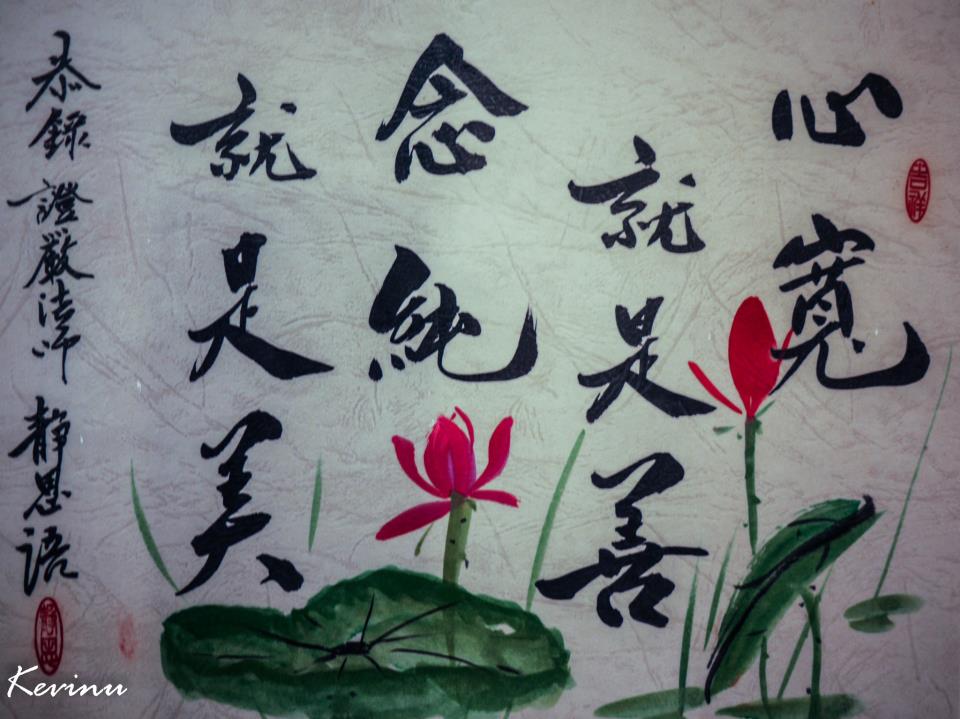 心寬
就是善
念純
就是美
恭錄 證嚴法師 靜思語
吉祥
靜思
Kevinu